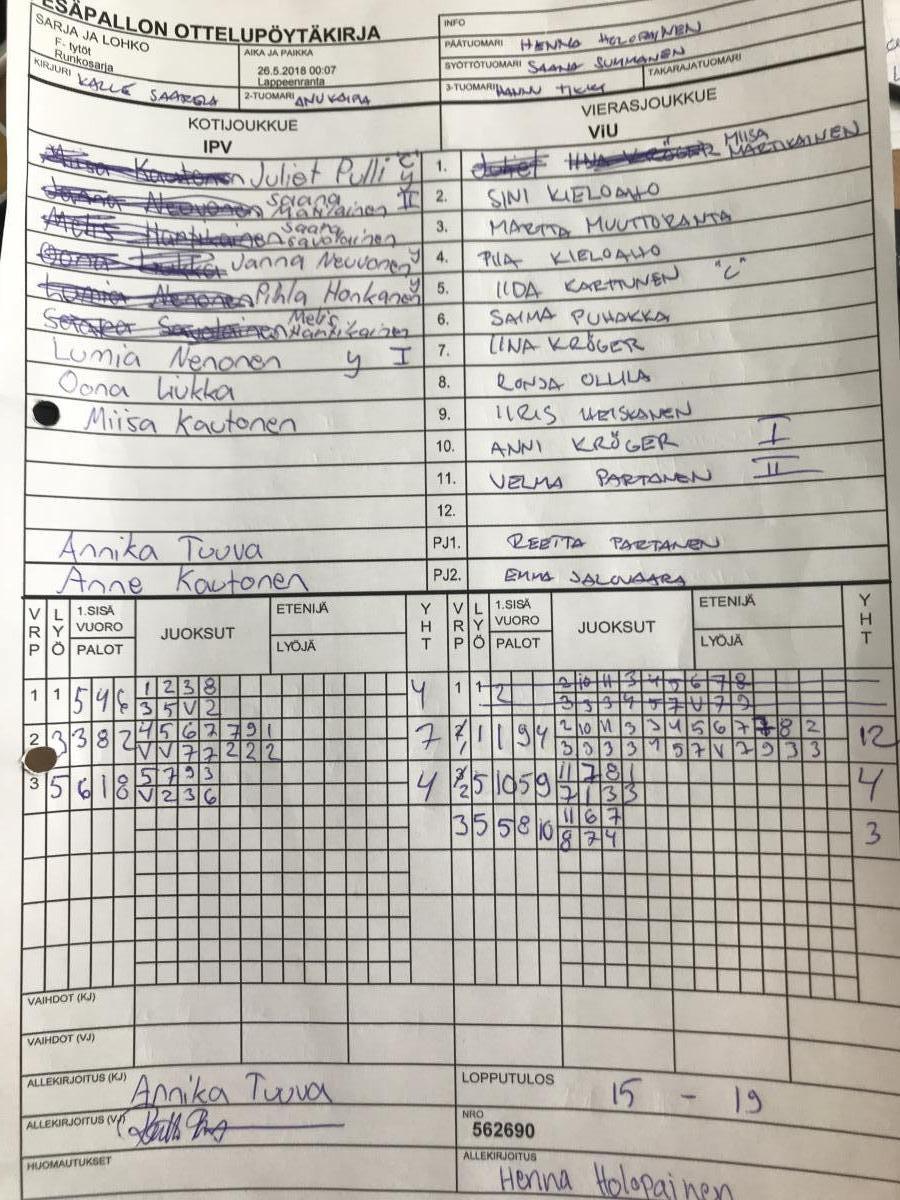 ESÄPALLON OTTELUPÖYTÄKIRJA
SARJA JA LOHKO
F- tytöt
Runkosarja
AIKA JA PAIKKA
26.5.2018 00:07
Lappeenranta
KIRJURI KALLE SAARELA
2-TUOMARI ANU KAIPA
INFO
PÄÄTUOMARI HENNA HOLOPAINEN
SYÖTTÖTUOMARI SAANA SUMMANEN
TAKARAJATUOMARI
3-TUOMARI
KOTIJOUKKUE
IPV
VIERASJOUKKUE
ViU
Miisa Kautonen Juliet Pulli "C" y
1. Juliet IINA KRÖGER MIISA MARTIKAINEN
Neuvonen Saana Matilainen II
2. SINI KIELOAHO
Melis Hantikainen Saana Savolainen
3. MARTTA MUUTTORANTA
Oona Liukka Janna Neuvonen y
4. PIIA KIELOAHO
Lumia Nenonen Pihla Honkanen y
5. IIDA KARTTUNEN "C"
Savolainen Melis Hantikainen
6. SAIMA PUHAKKA
Lumia Nenonen y I
7. IINA KRÖGER
Oona Liukka
8. RONJA OLLILA
Miisa Kautonen
9. IIRIS HEISKANEN
10. ANNI KRÖGER I
11. VELMA PARTONEN II
12.
Annika Tuuva
PJ1. REETTA PARTANEN
Anne Kautonen
PJ2. EMMA SALOVAARA
VRP LYÖ 1.SISÄ VUORO PALOT JUOKSUT ETENIJÄ LYÖJÄ YHT
VRP LYÖ 1.SISÄ VUORO PALOT JUOKSUT ETENIJÄ LYÖJÄ YHT
1 1 5 4 6 1 2 3 8 4
3 5 V 2
1 1 2 2 10 11 3 4 5 6 7 8
3 3 3 4 5 7 V 7 9
2 3 3 8 2 4 5 6 7 7 9 1 7
V V 7 7 2 2 2
1 1 9 4 2 10 11 3 3 4 5 6 7 7 8 2 12
3 3 3 3 4 5 7 V 7 9 3 3
3 5 6 1 8 5 7 9 3 4
V 2 3 6
2 5 10 5 9 11 7 8 1 4
7 1 3 3
3 5 5 8 10 11 6 7 3
8 7 4
VAIHDOT (KJ)
VAIHDOT (VJ)
ALLEKIRJOITUS (KJ) Annika Tuuva
LOPPUTULOS 15 - 19
ALLEKIRJOITUS (VJ)
NRO
562690
HUOMAUTUKSET
ALLEKIRJOITUS
Henna Holopainen